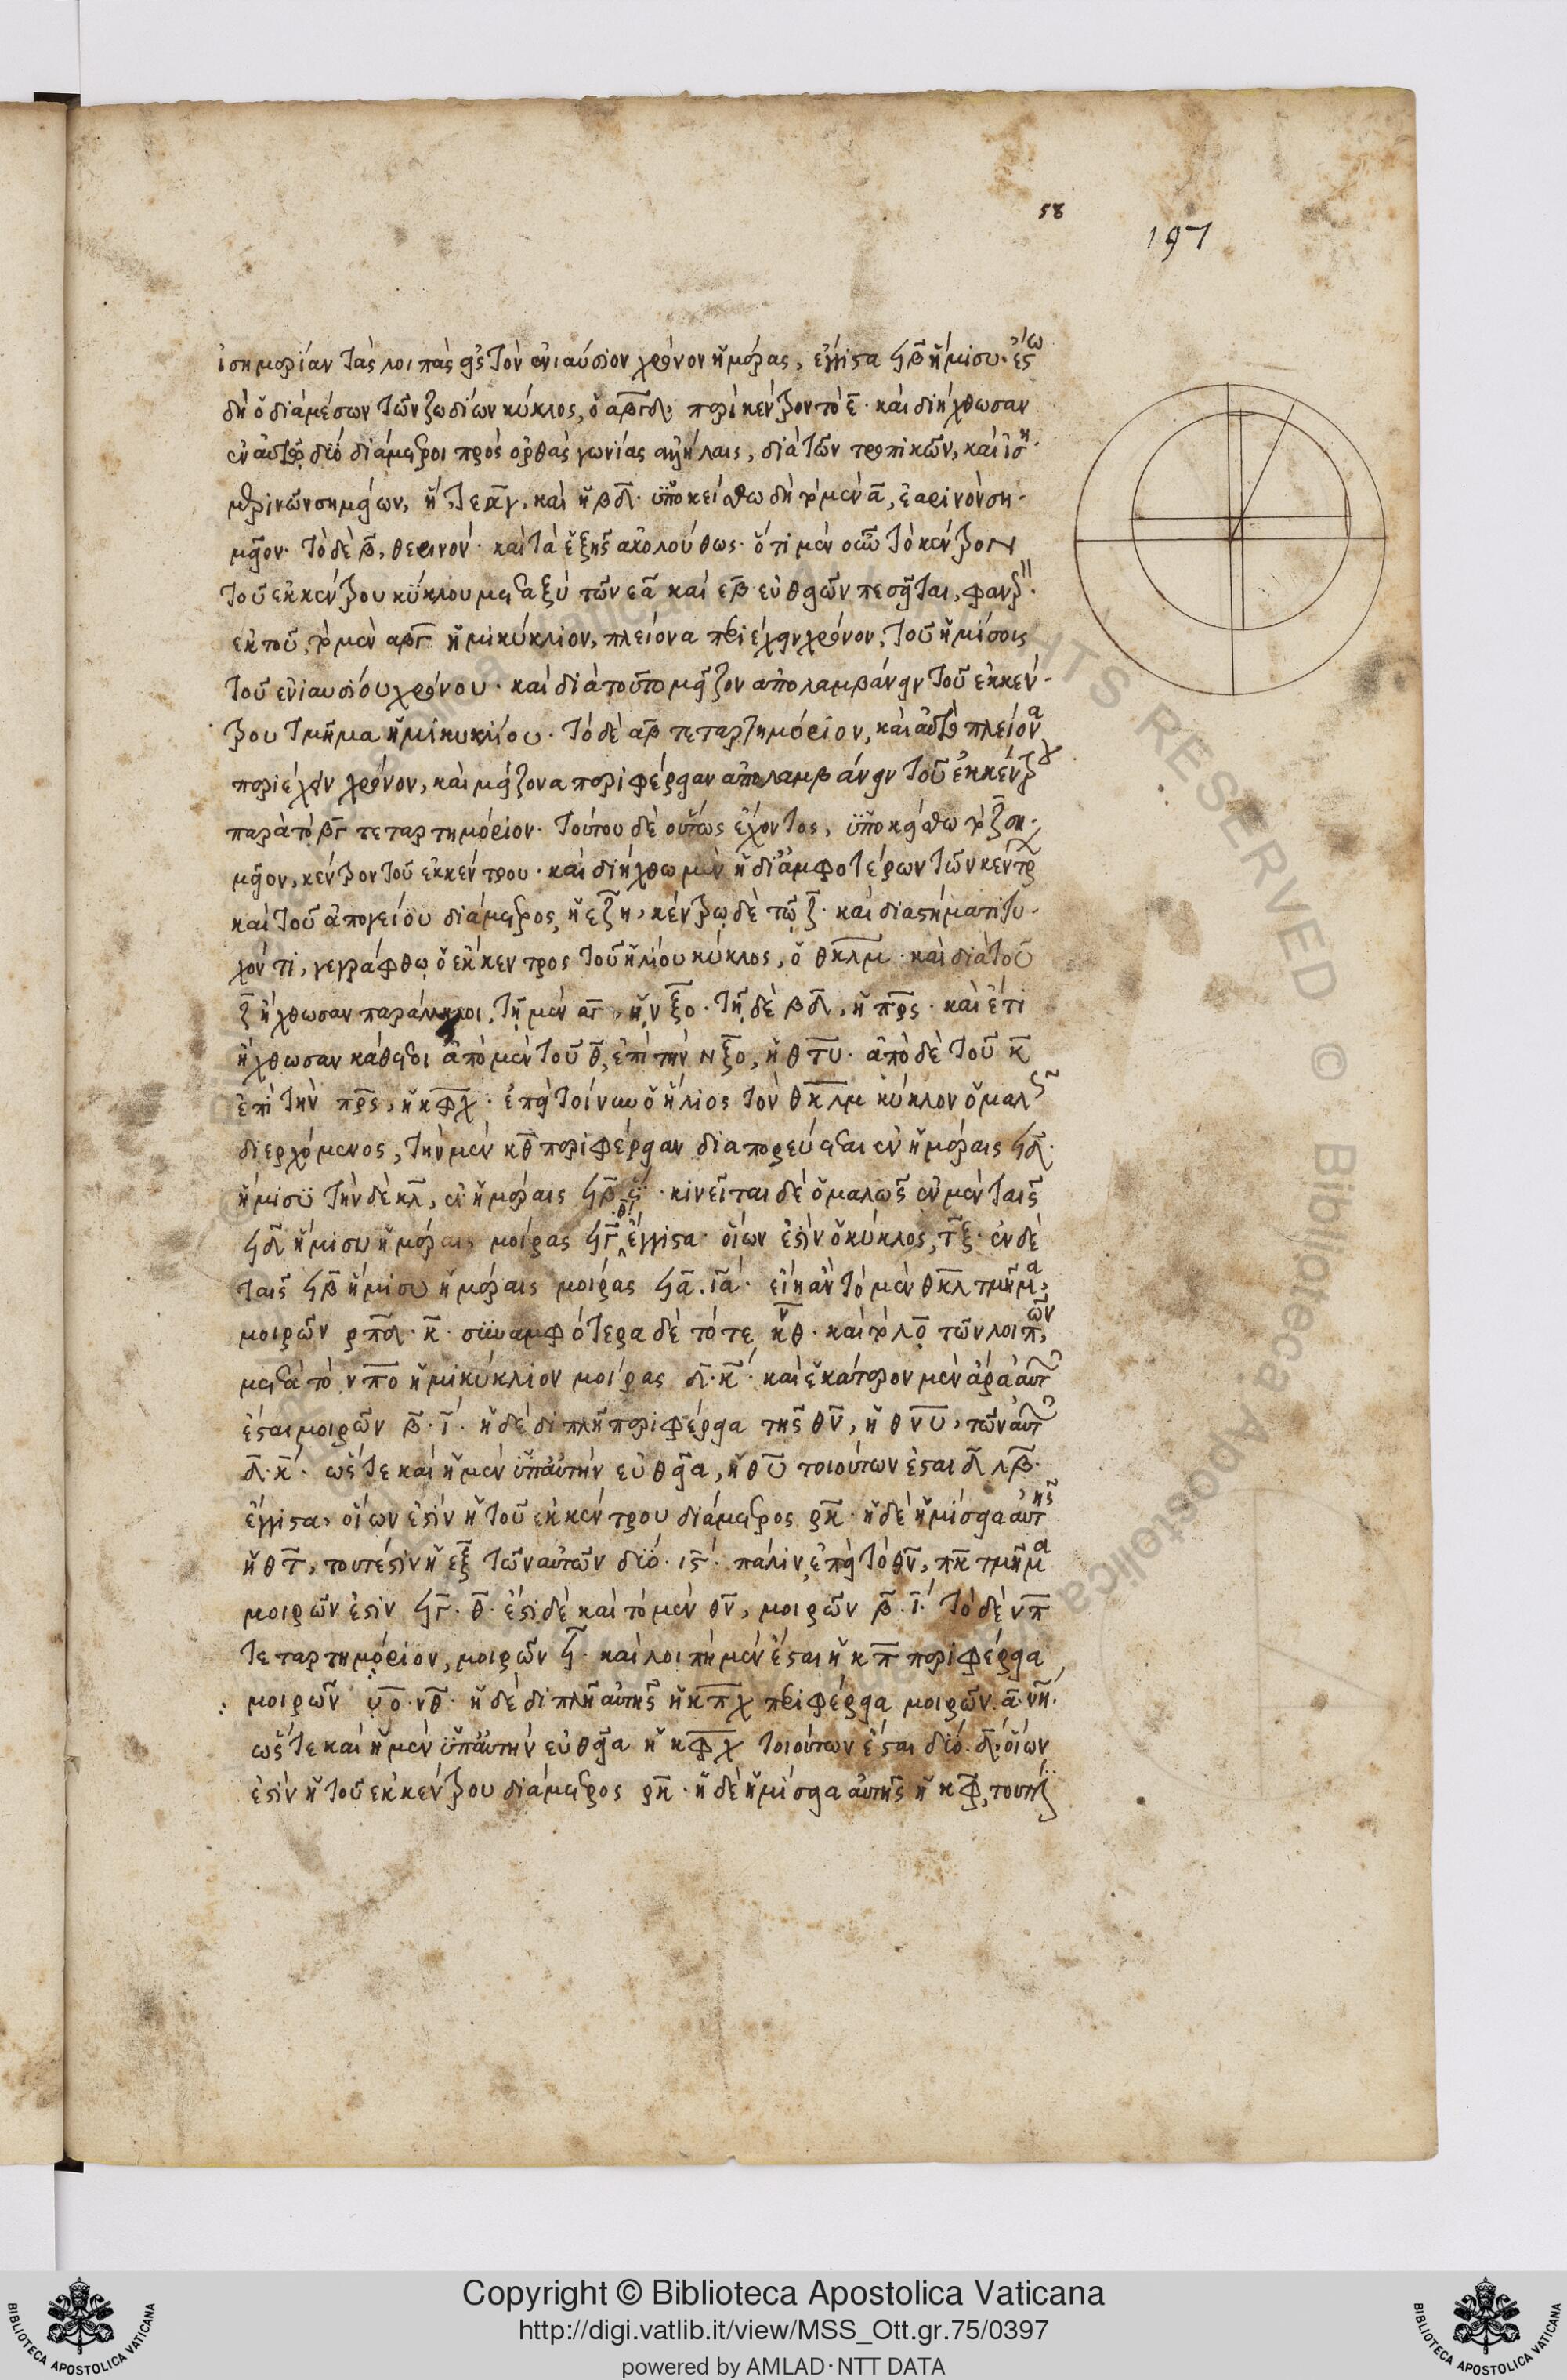 58
197
ἰσημερίαν τὰς λοιπὰς εἰς τὸν ἐνιαύσιον χρόνον ἡμέρας, ἔγγιστα ϟβ ἥμισυ. ἔστω
δὴ ὁ διὰ μέσων τῶν ζωδίων κύκλος, ὁ αβγδ, περὶ κέντρον τὸ ε. καὶ διήχθωσαν
ἐν αὐτῷ δύο διάμετροι πρὸς ὀρθὰς γωνίας ἀλλήλαις, διὰ τῶν τροπικῶν, καὶ ἰση-
μερινῶν σημείων, ἥ τε αγ, καὶ ἡ βδ. ὑποκείσθω δὴ τὸ μὲν α, ἐαρινὸν ση-
μεῖον. τὸ δὲ β, θερινόν. καὶ τὰ ἑξῆς ἀκολούθως. ὅτι μὲν οὖν τὸ κέντρον
τοῦ ἐκκέντρου κύκλου μεταξὺ τῶν εα καὶ εβ εὐθειῶν πεσεῖται, φανερὸν
ἐκ τοῦ, τὸ μὲν αβγ ἡμικύκλιον, πλείονα περιέχειν χρόνον, τοῦ ἡμίσους
τοῦ ἐνιαυσίου χρόνου. καὶ διὰ τοῦτο μεῖζον ἀπολαμβάνειν τοῦ ἐκκέν-
τρου τμῆμα ἡμικυκλίου. τὸ δὲ αβ τεταρτημόριον, καὶ αὐτὸ πλείονα
περιέχειν χρόνον, καὶ μείζονα περιφέρειαν ἀπολαμβάνειν τοῦ ἐκκέντρου
παρὰ τὸ βγ τεταρτημόριον. τούτου δὲ οὕτως ἔχοντος, ὑποκείσθω τὸ ζ ση-
μεῖον, κέντρον τοῦ ἐκκέντρου. καὶ διήχθω μὲν ἡ δι' ἀμφοτέρων τῶν κέντρων
καὶ τοῦ ἀπογείου διάμετρος, ἡ εζη, κέντρῳ δὲ τῷ ζ. καὶ διαστήματι τυ-
χόντι, γεγράφθω ὁ ἔκκεντρος τοῦ ἡλίου κύκλος, ὁ θκλμ. καὶ διὰ τοῦ
ζ ἤχθωσαν παράλληλοι, τῇ μὲν αγ, ἡ νξο. τῇ δὲ βδ, ἡ πρς. καὶ ἔτι
ἤχθωσαν κάθετοι ἀπὸ μὲν τοῦ θ, ἐπὶ τὴν νξο, ἡ θτυ. ἀπὸ δὲ τοῦ κ
ἐπὶ τὴν πρς, ἡ κφχ. ἐπεὶ τοίνυν ὁ ἥλιος τὸν θκλμ κύκλον ὁμαλῶς
διερχόμενος, τὴν μὲν κθ περιφέρειαν διαπορεύεται ἐν ἡμέραις ϟδ.
ἥμισυ τὴν δὲ κλ, ἐν ἡμέραις ϟβ . κινεῖται δὲ ὁμαλῶς ἐν μὲν ταῖς
ϟδ ἥμισυ ἡμέραις μοίρας ϟγ θ ἔγγιστα. οἵων ἐστὶν ὁ κύκλος, τξ. ἐν δὲ
ταῖς ϟβ ἥμισυ ἡμέραις μοίρας ϟα. ια. εἴη ἂν τὸ μὲν θκλ τμῆμα,
μοιρῶν ρπδ. κ. συναμφότερα δὲ τό τε νθ. καὶ τὸ λο τῶν λοιπῶν,
μετὰ τὸ νπο ἡμικύκλιον μοίρας δ. κ. καὶ ἑκάτερον μὲν ἄρα αὐτῶν
ἔσται μοιρῶν β. ι. ἡ δὲ διπλῆ περιφέρεια τῆς θν, ἡ θνυ, τῶν αὐτῶν
δ. κ. ὥστε καὶ ἡ μὲν ὑπ' αὐτὴν εὐθεῖα, ἡ θυ τοιούτων ἔσται δ λβ.
ἔγγιστα, οἵων ἐστὶν ἡ τοῦ ἐκκέντρου διάμετρος ρκ. ἡ δὲ ἡμίσεια αὐτῆς
ἡ θτ, τουτέστιν ἡ εξ τῶν αὐτῶν δύο. ις. πάλιν, ἐπεὶ τὸ θν, πκ τμῆμα
μοιρῶν ἐστὶν ϟγ. θ. ἔστι δὲ καὶ τὸ μὲν θν, μοιρῶν β. ι. τὸ δὲ νπ
τεταρτημόριον, μοιρῶν ϟ. καὶ λοιπὴ μὲν ἔσται ἡ κπ περιφέρεια
μοιρῶν ο. νθ. ἡ δὲ διπλῆ αὐτῆς ἡ κπχ περιφέρεια μοιρῶν. α. νη.
ὥστε καὶ ἡ μὲν ὑπ' αὐτὴν εὐθεῖα ἡ κφχ τοιούτων ἔσται δύο. δ, οἵων
ἐστὶν ἡ τοῦ ἐκκέντρου διάμετρος ρκ. ἡ δὲ ἡμίσεια αὐτῆς ἡ κφ, τουτέστιν
Copyright © Biblioteca Apostolica Vaticana
http://digi.vatlib.it/view/MSS_Ott.gr.75/0397
powered by AMLAD·NTT DATA
BIBLIOTECA APOSTOLICA VATICANA
BIBLIOTECA APOSTOLICA VATICANA